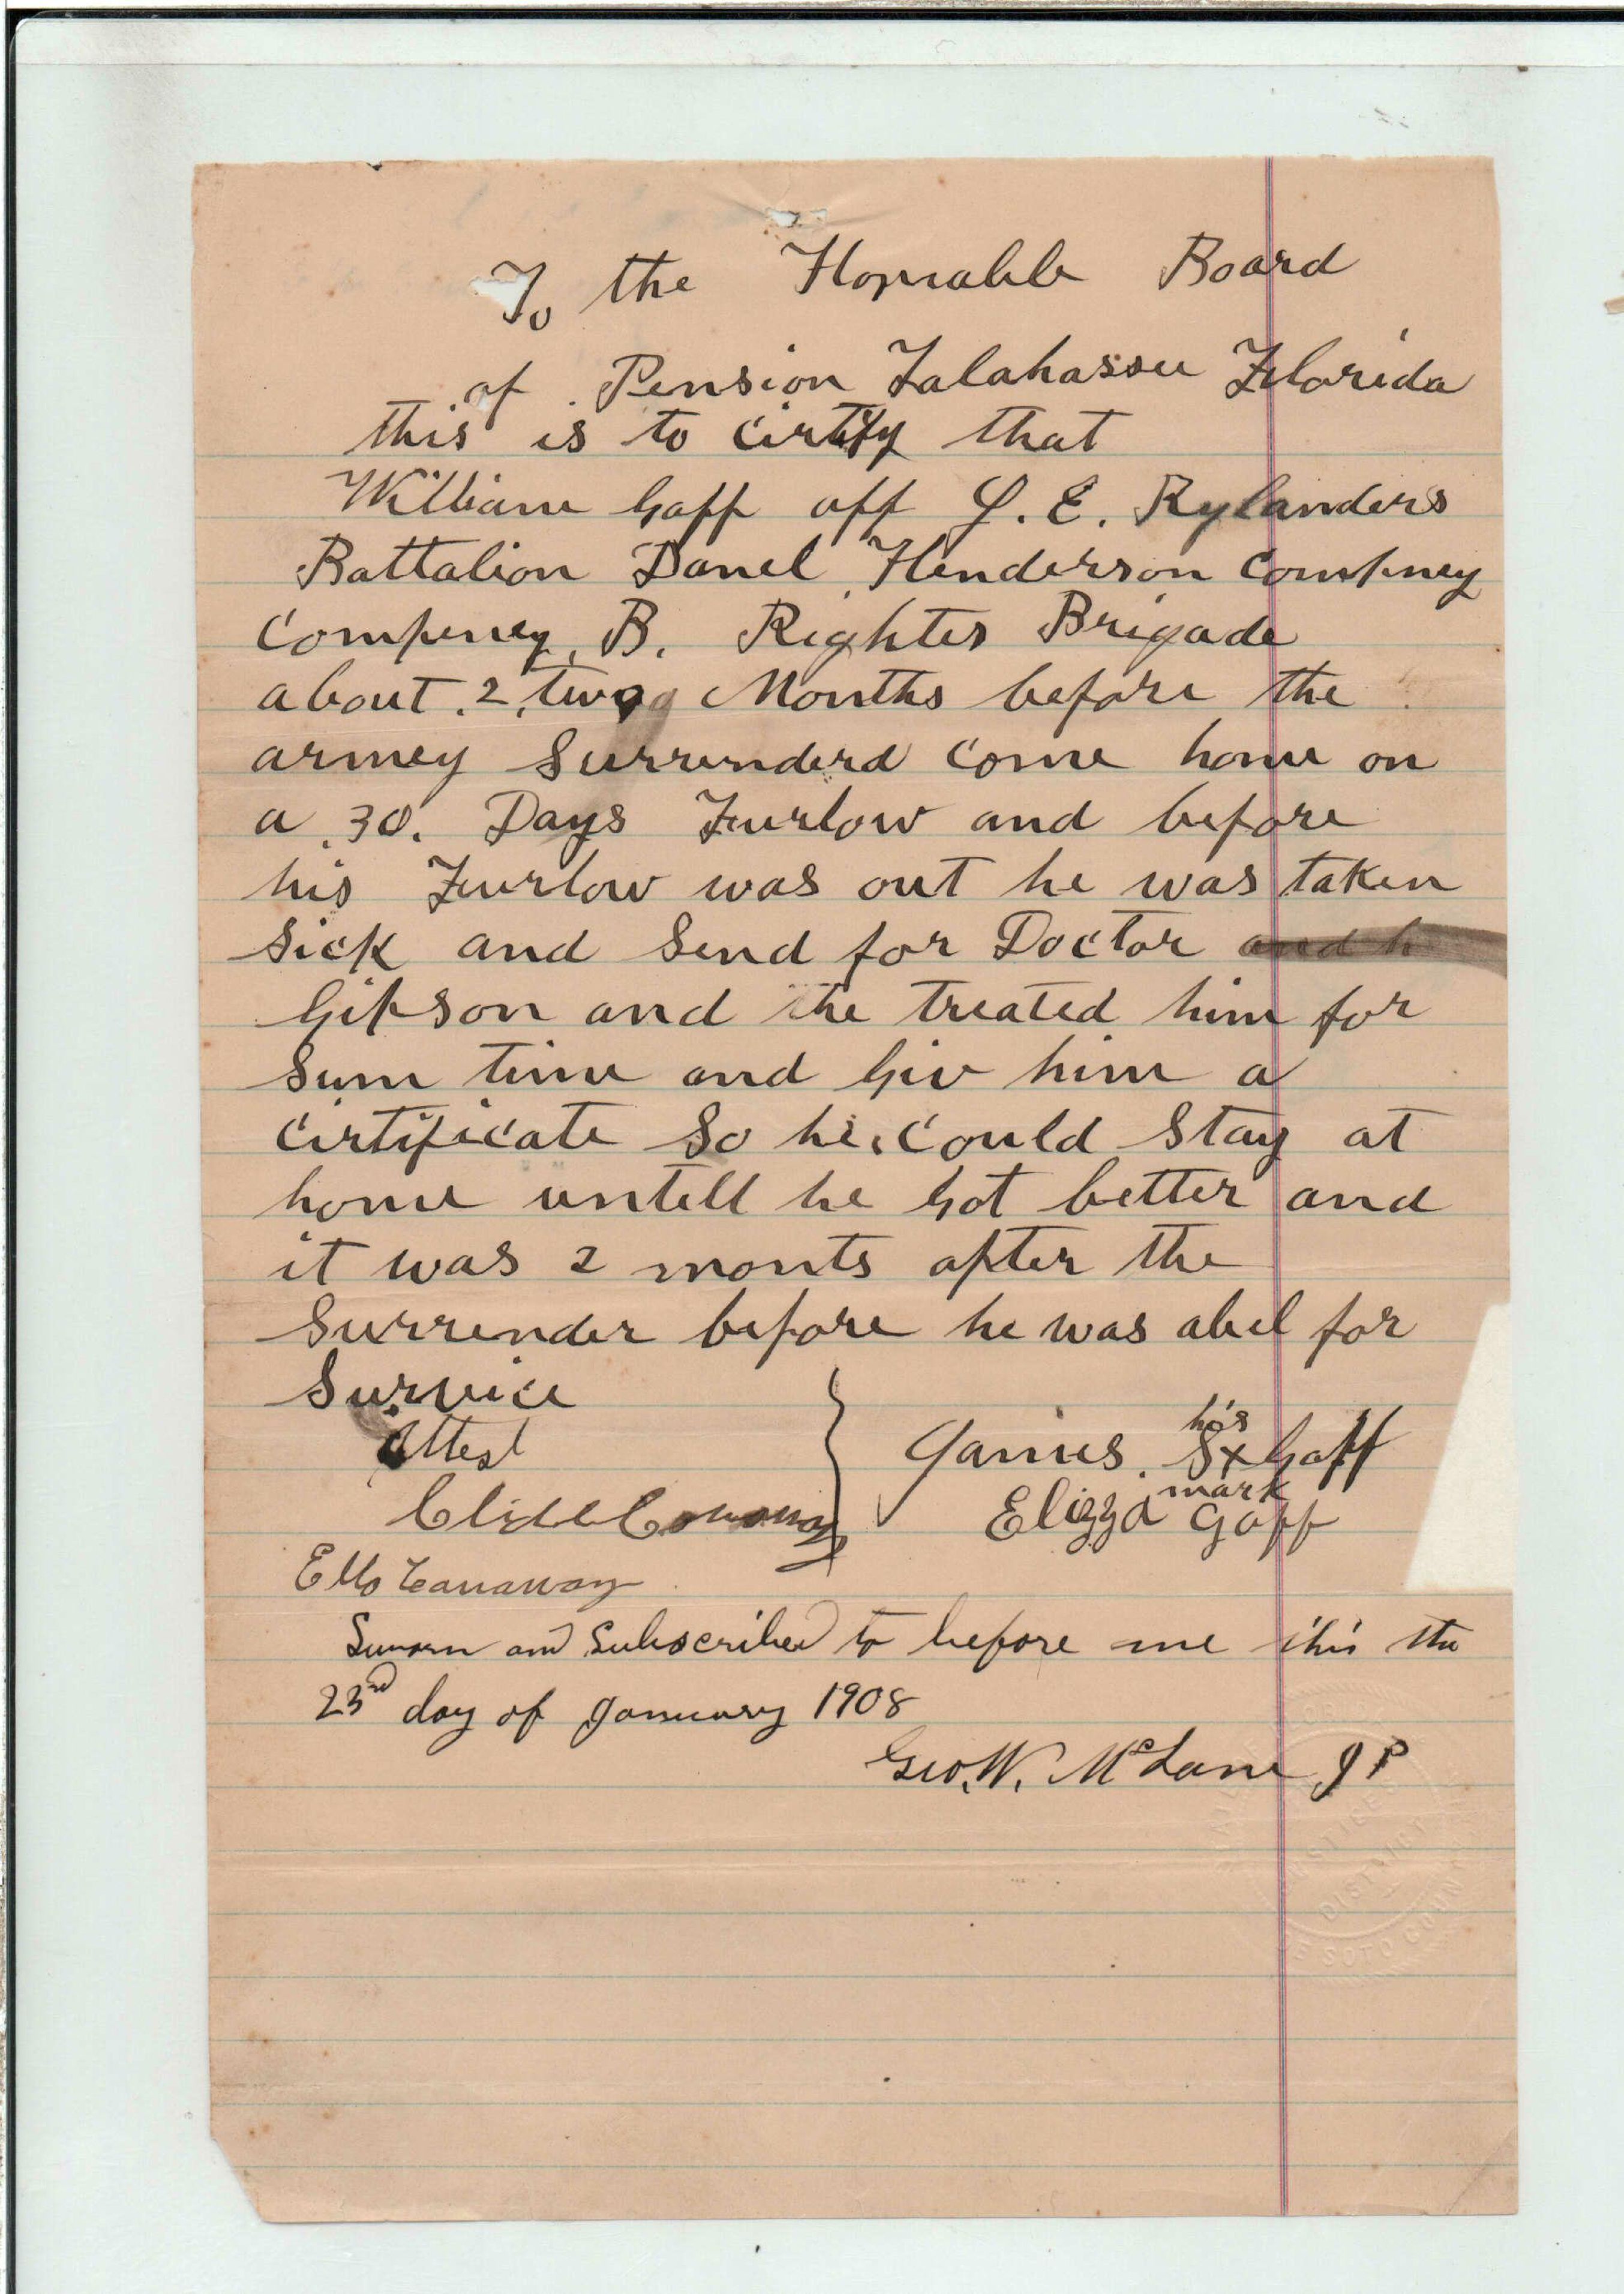 To the Honrable Board
of Pension Talahassee Florida
this is to cirtify that
William Goff off J. E. Rylanders
Battalion Danel Henderson Compney
Compeney B. Righter Brigade
about 2, two Months before the
armey Surrenderd Come home on
a 30. Days Furlow and before
his Furlow was out he was taken
Sick and Send for Doctor and h
Gipson and he treated him for
Sum time and Giv him a
Cirtificate So he Could Stay at
home untell he Got better and
it was 2 monts after the
Surrender before he was abel for
Survice
Attest
James his S x Goff
mark
Elizza Goff
Sworn and Subscribed to before me this the
23rd day of January 1908
Geo. W. McLane JP
JUSTICE
DISTRICT
SOTO COUN